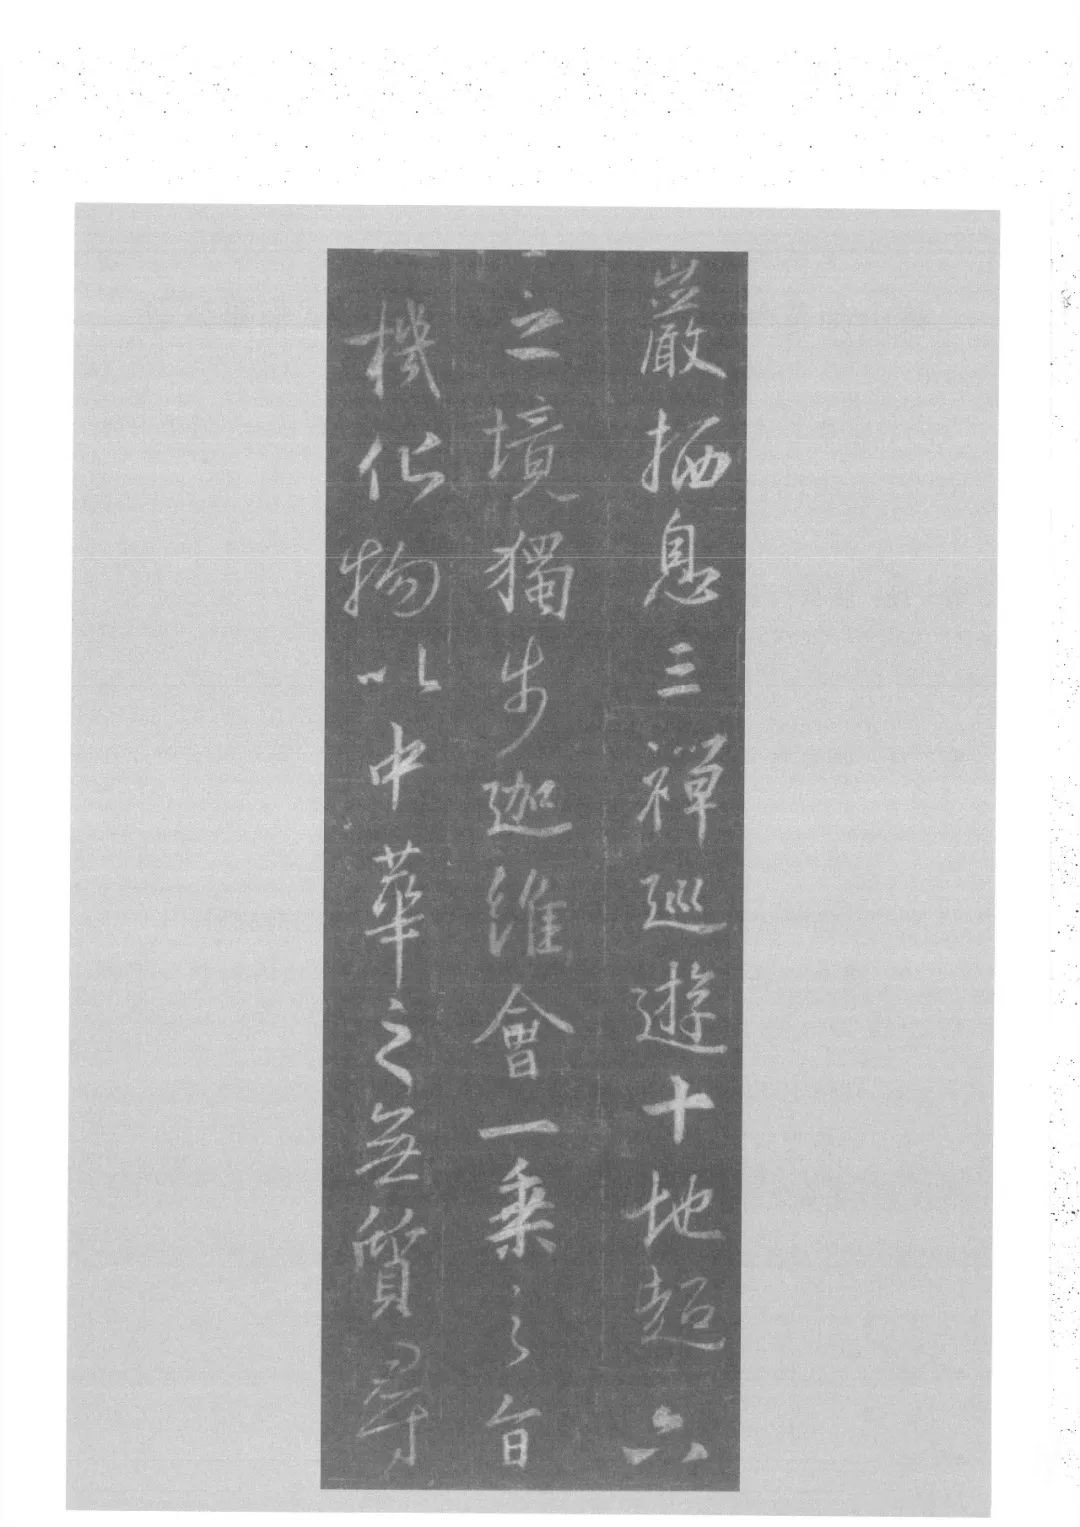 巖栖息三禪巡遊十地超六
之境獨步迦維會一乘之旨
機化物以中華之無質尋